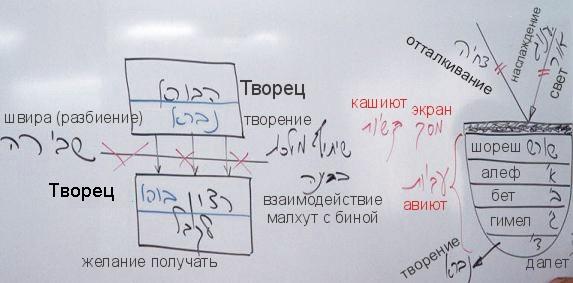 הבורא
Творец
נברא
творение
швира (разбиение)
שבירה
שיתוף מלכות
בבינה
Творец
רצון
לקבל
взаимодействие
малхут с биной
желание получать
отталкивание
דחיה
наслаждение
תענוג
свет
אור
кашиют экран
מסך קשיות
шореш שורש
алеф א'
бет ב
гимел ג
ד'
далет
עביות
авиют
творение
נברא